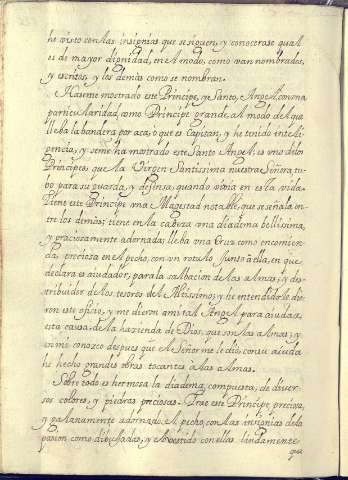 he visto con las insignias que se siguen, y conocerase qual
es de mayor dignidad, en el modo, como van nombrados,
y escritos, y los demas como se nombran.
Haseme mostrado este Principe, y Santo, Angel, con una
particularidad, como Principe grande, al modo del que
lleba la bandera por aca, o que es Capitan, y he tenido inteli
gencia, y seme ha mostrado este Santo Angel: es uno delos
Principes que la Virgen Santissima nuestra Señora, tu
bo para su guarda, y defensa, quando vivia en esta vida.
Tiene este Principe una Magestad notable, que se señala en
tre los demas; tiene en la cabeza una diadema bellissima,
y graciosamente adornada; lleba una Cruz como encomien
da preciosa en el pecho, con un rotulo junto à ella, en que
declara es aiudador, para la salbacion de las almas, y des
tribuidor de los tesoros del Altissimo; y he entendido le die
ron este oficio, y me dieron a mi tal Angel para aiuda de
esta causa de la hazienda de Dios, que son las almas; y
en mi conozco despues que el Señor me le diò, con su aiuda
he hecho grandes obras tocantes à las almas.
Sobre todo es hermosa la diadema, compuesta, de diver
sos colores, y piedras preciosas. Trae este Principe, preciosa,
y galanamente adornado el pecho, con las insignias de la
pasion, como dibujadas, y el vestido con ellas lindamente
que